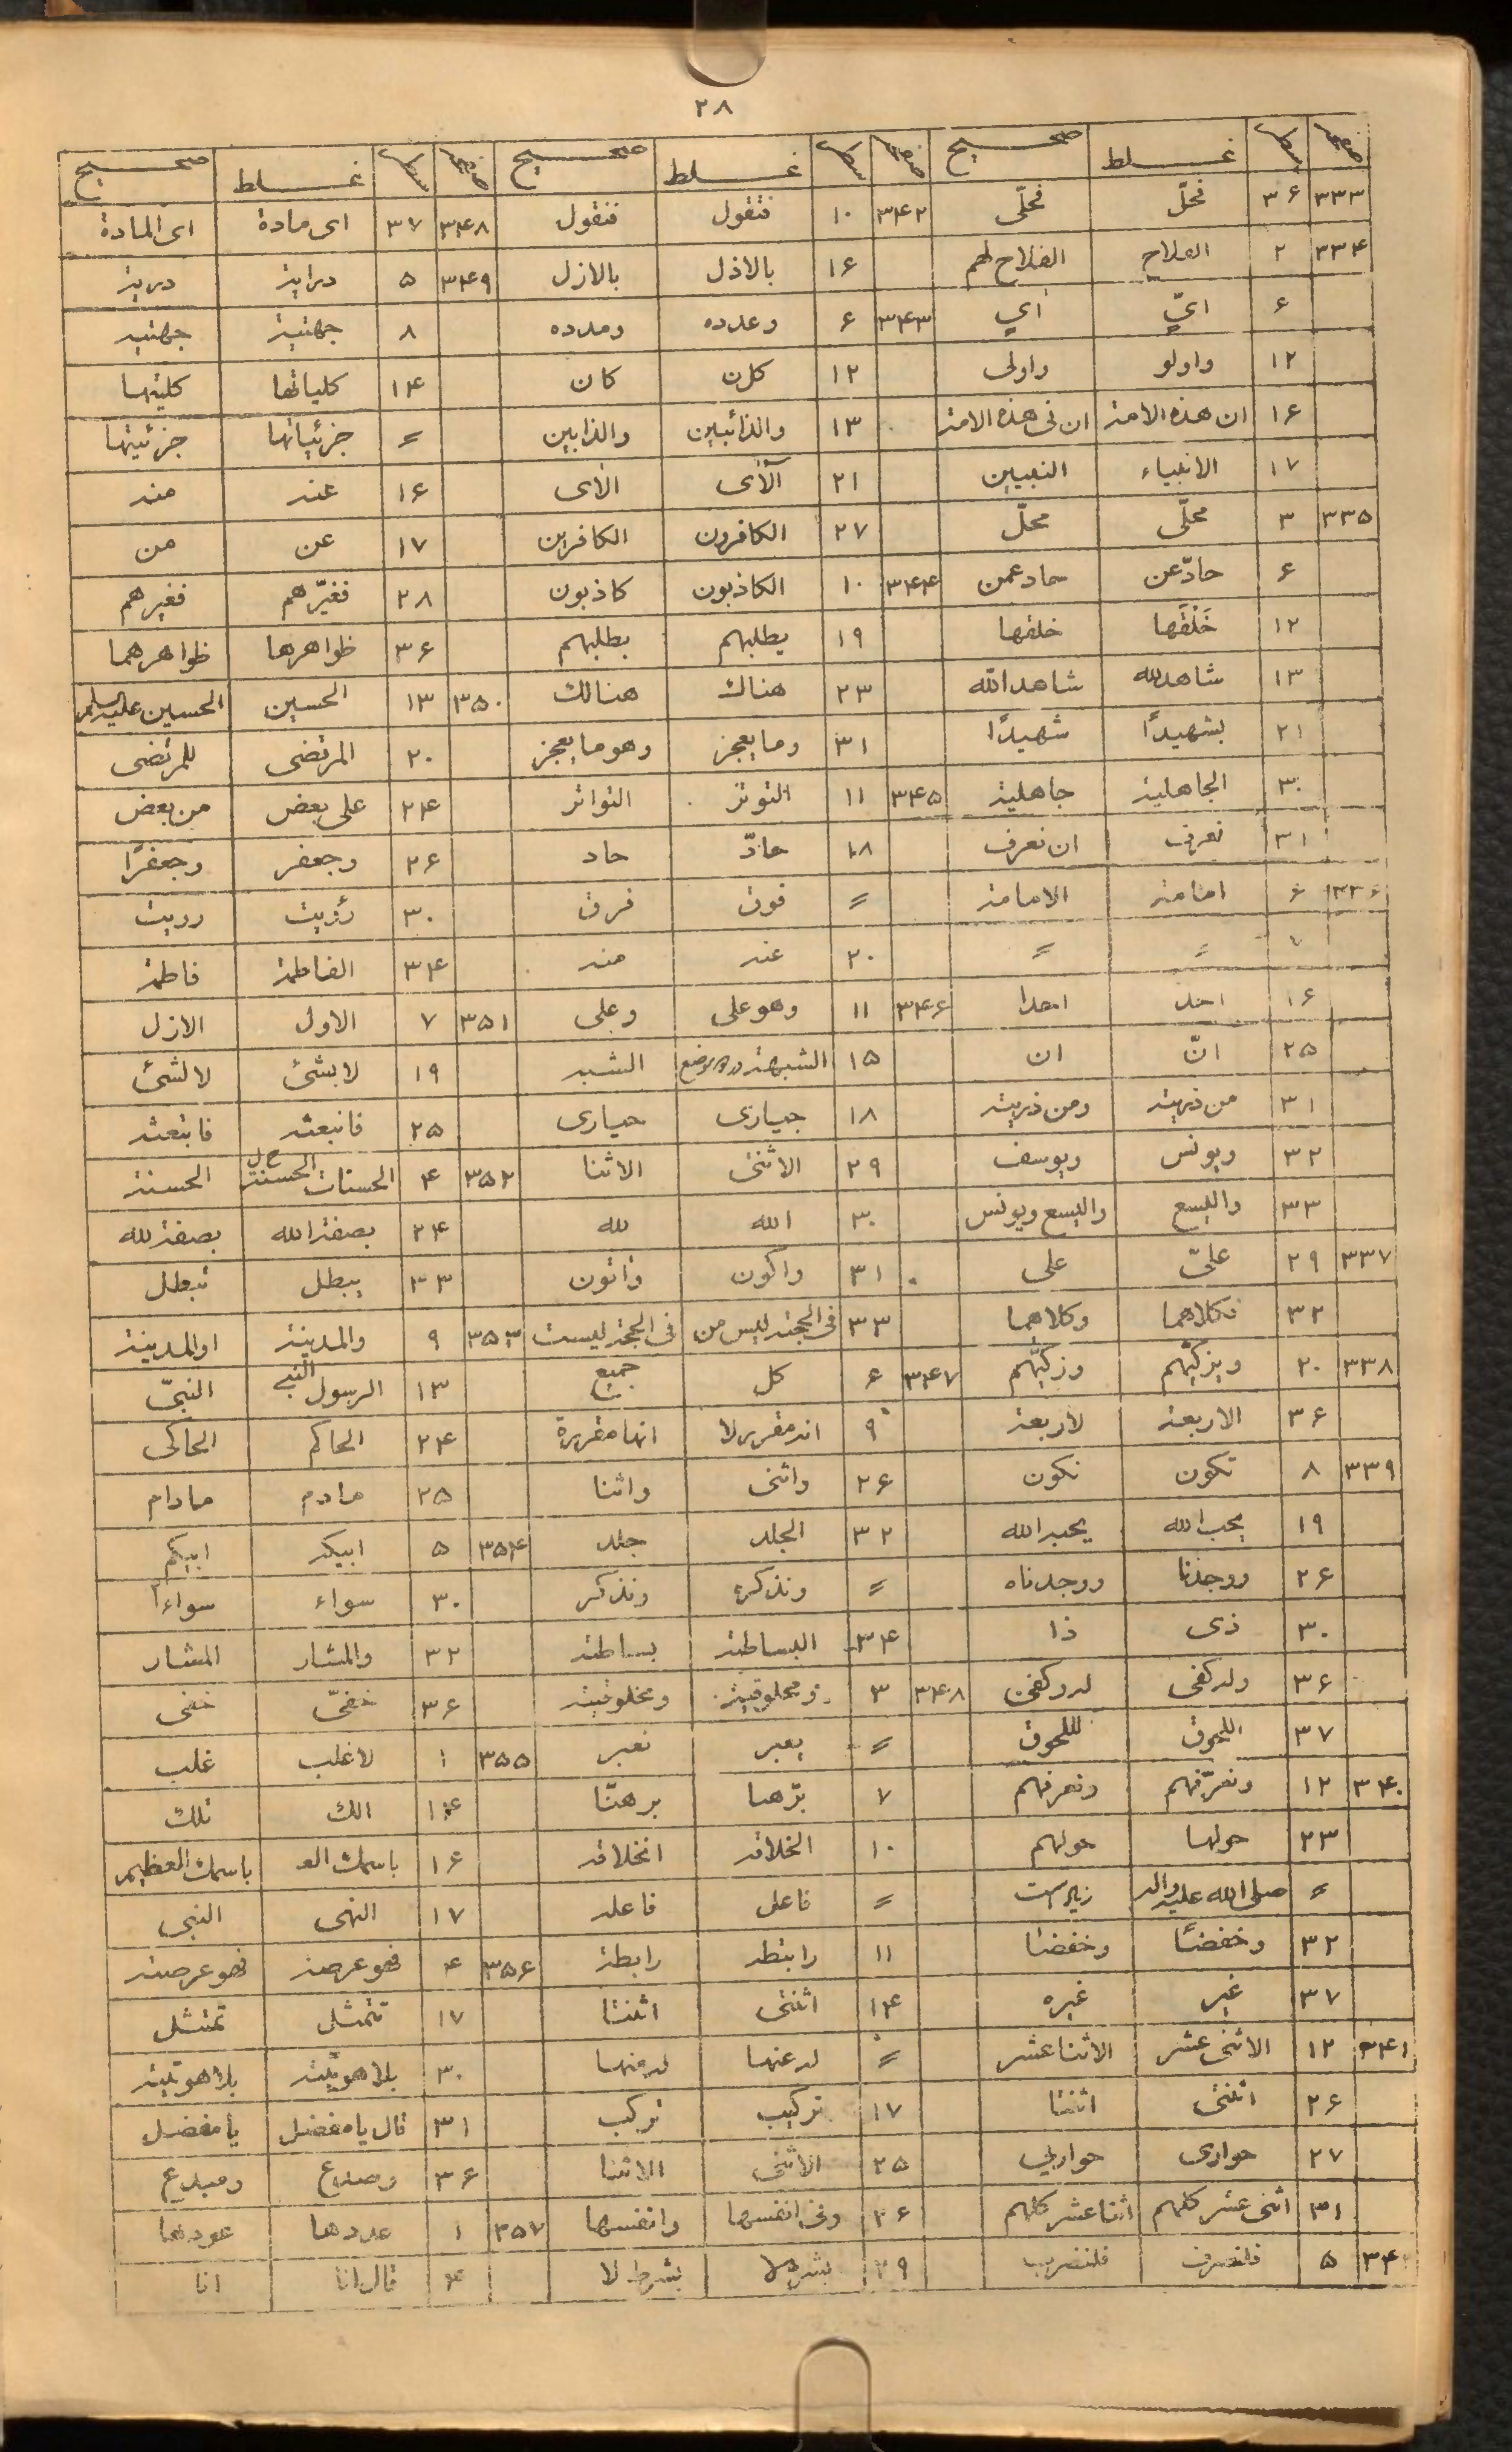 ٢٨
صفحه سطر غلط صحیح صفحه سطر غلط صحیح صفحه سطر غلط صحیح
٣٣٣ ٣۶ فحلّ فحلّی ٣۴٢ ١٠ فتقول فنقول ٣۴٨ ٣٧ ای مادة ای المادة
٣٣۴ ٢ الفلاح الفلاح لهم ١۶ بالاذل بالازل ٣۴٩ ۵ درایة دریة
۶ ایّ ای ٣۴٣ ۶ وعدده ومدده ٨ جهتیة جهتیه
١٢ واولو واولی ١٢ كلن كان ١۴ كلیاتها كلیتها
١۶ ان هذه الامة ان فی هذه الامة ١٣ والذائبین والذابین = جزئیاتها جزئیتها
١٧ الانبیاء النبیین ٢١ آلآی الآی ١۶ عنه منه
٣٣۵ ٣ محلّی محلّ ٢٧ الكافرون الكافرین ١٧ عن من
۶ حادّ عن حاد عمن ٣۴۴ ١٠ الكاذبون كاذبون ٢٨ فغیّرهم فغیرهم
١٢ خَلْقَها خلفها ١٩ یطلبهم بطلبهم ٣۶ ظواهرها ظواهرهما
١٣ شاهدلله شاهدالله ٢٣ هناك هنالك ٣۵٠ ١٣ الحسین الحسین علیه السلم
٢١ بشهیدًا شهیدًا ٣١ وما یعجز وهو ما یعجز ٢٠ المرتضی للمرتضی
٣٠ الجاهلیة جاهلیة ٣۴۵ ١١ التوتر التواتر ٢۴ علی بعض من بعض
٣١ نعرف ان نعرف ١٨ حادّ حاد ٢۶ وجعفر وجعفرًا
٣٣۶ ۶ امامة الامامة = فوق فرق ٣٠ رؤیت رویت
٧ = = ٢٠ عنه منه ٣۴ الفاطمة فاطمة
١۶ احد احدا ٣۴۶ ١١ وهو علی وعلی ٣۵١ ٧ الاول الازل
٢۵ انّ ان ١۵ الشبهة دوموضع الشبه ١٩ لا بشئ لا لشئ
٣١ من ذریته ومن ذریته ١٨ جیاری حیاری ٢۵ فانبعثه فابتعثه
٣٢ ویونس ویوسف ٢٩ الاثنی الاثنا ٣۵٢ ۴ الحسنات الحسنة خ ل الحسنة
٣٣ والیسع والیسع ویونس ٣٠ الله لله ٢۴ بصفة الله بصفة لله
٣٣٧ ٢٩ علیّ علی ٣١ واكون واتون ٣٣ یبطل تبطل
٣٢ فكلاهما وكلاهما ٣٣ فی الجنة لیس من فی الجنة لیست ٣۵٣ ٩ والمدینة اوالمدینة
٣٣٨ ٢٠ ویزكیّهم وزكیّهم ٣۴٧ ۶ كل جمیع ١٣ الرسول النبی النبیّ
٣۶ الاربعة لاربعة ٩ انه مقررلا انها مقررة ٢۴ الحاكم الحاكی
٣٣٩ ٨ تكون نكون ٢۶ واثنی واثنا ٢۵ مادم مادام
١٩ یحب الله یحبه الله ٣٢ الجلد جلد ٣۵۴ ۵ ابیكم ابیكم
٢۶ ووجدنا ووجدناه = وتذكرة وتذكر ٣٠ سواء سواءاً
٣٠ ذی ذا ٣۴ البساطة بساطة ٣٢ والمشار المشار
٣۶ وله كفی له وكفی ٣۴٨ ٣ ومحلوقیة ومخلوقیة ٣۶ خفیّ خفی
٣٧ اللحوق للحوق = یعبر نعبر ٣۵۵ ١ لاغلب غلب
٣۴٠ ١٢ ونعرّفهم ونعرفهم ٧ برّهنا برهنّا ١۴ الك تلك
٢٣ حولها حولهم ١٠ الخلاقه انخلاقه ١۶ باسمك العـ باسمك العظیم
= صلی الله علیه واله زیاد است = فاعل فاعله ١٧ النهی النبی
٣٢ وخفضًا وخفضنا ١١ رابتطه رابطة ٣۵۶ ۴ فهو عرصة فهو عرصته
٣٧ غیر غیره ١۴ اثنتی اثنتا ١٧ تتمثل تمتثل
٣۴١ ١٢ الاثنی عشر الاثنا عشر = له عنها له منها ٣٠ بلاهویّة بلاهوتیّة
٢۶ اثنتی اثنتا ١٧ تركیب تركب ٣١ قال یا مفضل یا مفضل
٢٧ حواری حواریی ٢۵ الاثنی الاثنا ٣۶ وصدع ومبدع
٣١ اثنی عشر كلهم اثنا عشر كلهم ٢۶ وفی انفسها وانفسها ٣۵٧ ١ عددها عودها
٣۴٢ ۵ فلنصرف فلنضرب ٢٩ بشرط بشرط لا ۴ قال انا انا